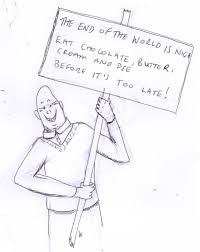 THE END OF THE WORLD IS NIGH
EAT CHOCOLATE, BUTTER,
CREAM AND PIE
BEFORE IT'S TOO LATE!